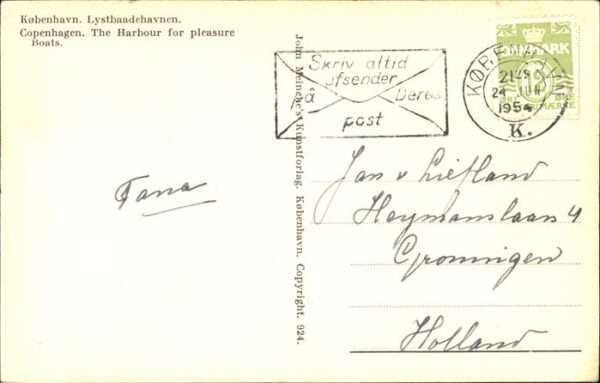 København. Lystbaadehavnen.
Copenhagen. The Harbour for pleasure
Boats.
John Meinche's Kunstforlag. København. Copyright. 924.
Skriv altid
afsender
på Deres
post
KØBENHAVN
21
24
1954
K.
DANMARK
Jan v Liefland
Heymanslaan 4
Groningen
Holland